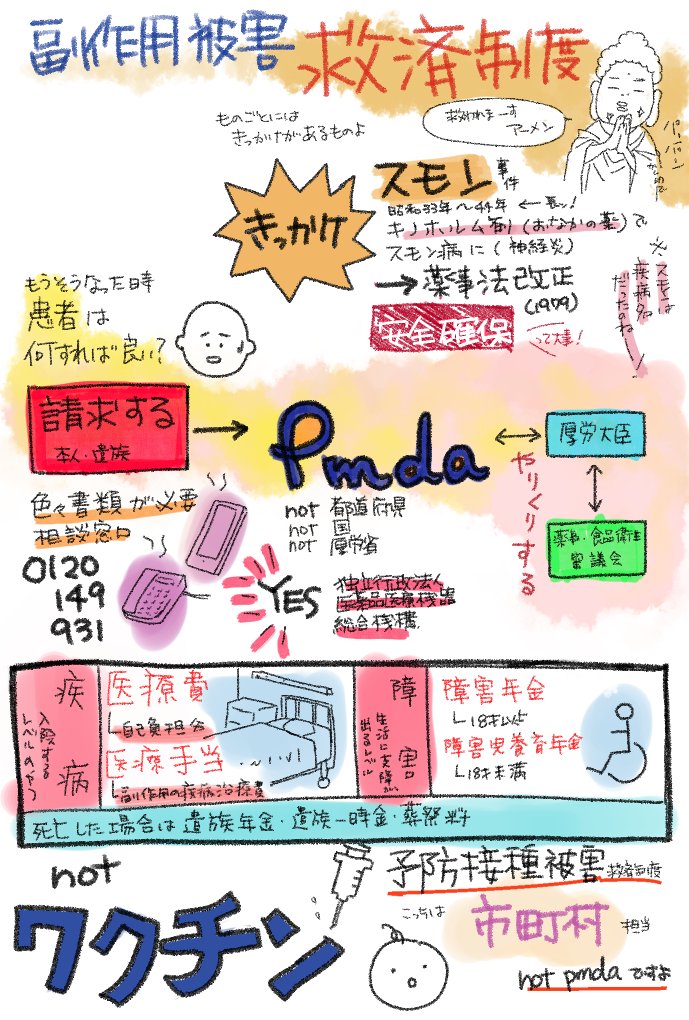 副作用被害救済制度
ものごとには
きっかけがあるものよ
救われまーす
アーメン
きっかけ
スモン事件
昭和33年〜44年 ←長ッ!
キノホルム剤(おなかの薬)で
スモン病に(神経炎)
→薬事法改正
(1979)
安全確保って大事!
※スモンは
疾病名
だったのね
もうそうなった時
患者は
何すれば良い?
請求する
本人・遺族
Pmda
厚労大臣
やりくりする
薬事・食品衛生
審議会
色々書類が必要
相談窓口
0120
149
931
not 都道府県
not 国
not 厚労省
YES
独立行政法人
医薬品医療機器
総合機構
疾病
入院する
レベルのやつ
医療費
自己負担分
医療手当
副作用の疾病治療費
障害
生活に支障が
出るレベル
障害年金
18才以上
障害児養育年金
18才未満
死亡した場合は遺族年金・遺族一時金・葬祭料
not
ワクチン
予防接種被害救済制度
こっちは
市町村担当
not pmdaですよ